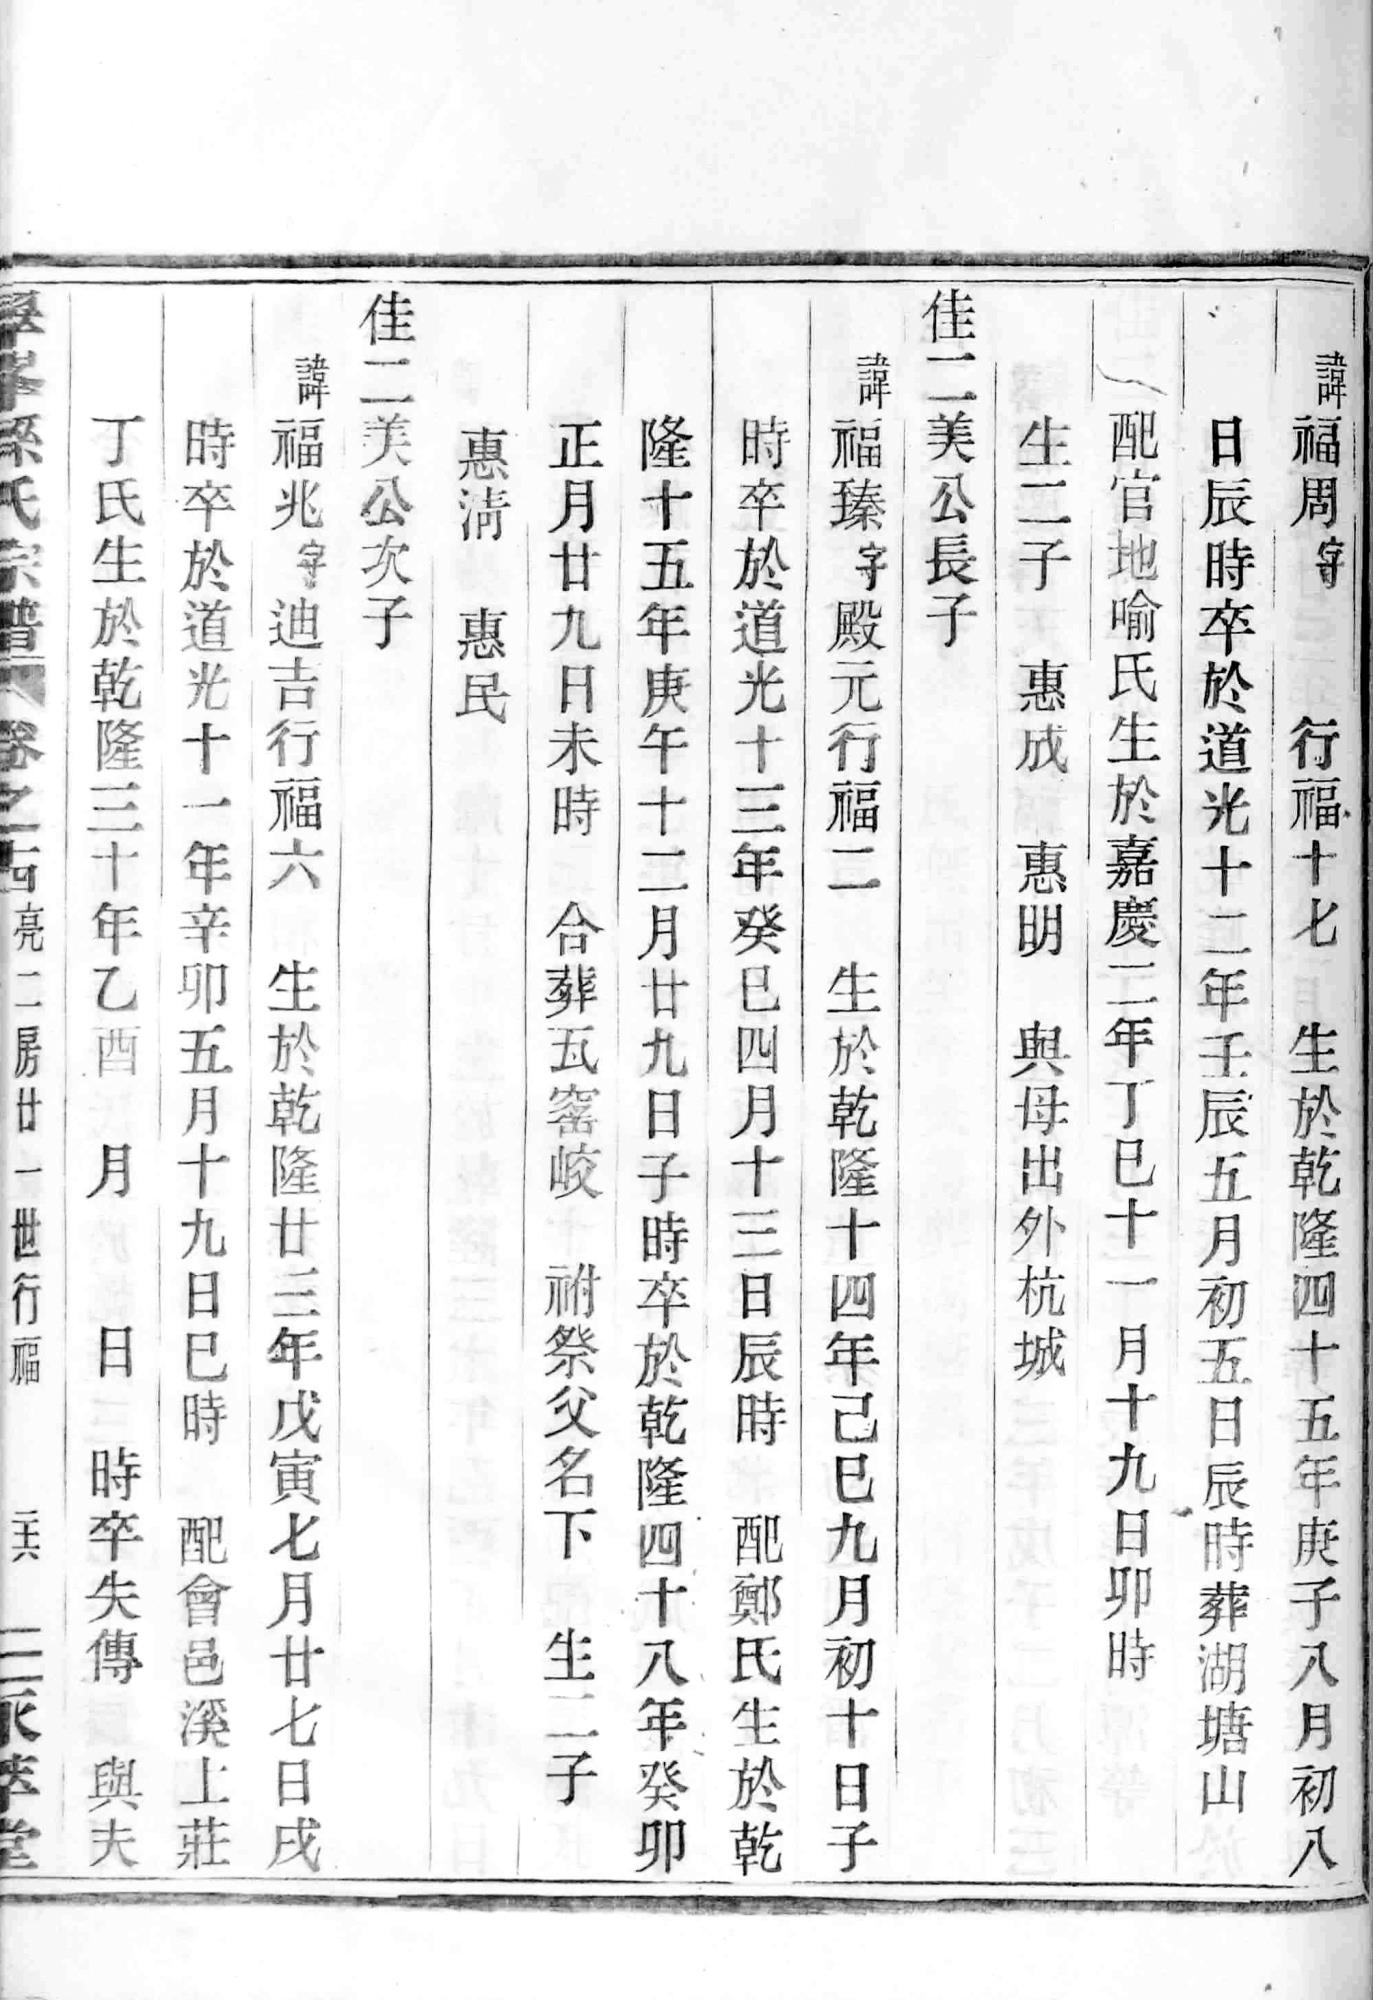 諱福周字　　行福十七　生於乾隆四十五年庚子八月初八
日辰時卒於道光十二年壬辰五月初五日辰時葬湖塘山
配官地喻氏生於嘉慶二年丁巳十一月十九日卯時
生二子　惠成　惠明　與母出外杭城
佳二美公長子
諱福臻字殿元行福二　生於乾隆十四年己巳九月初十日子
時卒於道光十三年癸巳四月十三日辰時　配鄭氏生於乾
隆十五年庚午十二月廿九日子時卒於乾隆四十八年癸卯
正月廿九日未時　合葬瓦窰峧　祔祭父名下　生二子
惠淸　惠民
佳二美公次子
諱福兆字迪吉行福六　生於乾隆廿三年戊寅七月廿七日戌
時卒於道光十一年辛卯五月十九日巳時　配會邑溪上莊
丁氏生於乾隆三十年乙酉　月　　日　時卒失傳　與夫
孫氏宗譜　卷之十四　亮二房廿一世行福　二六　永萃堂